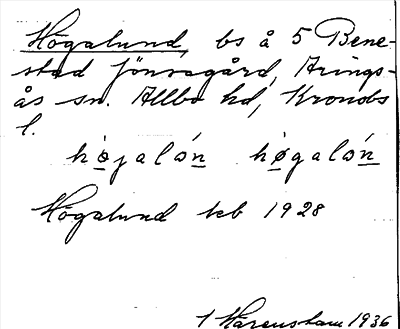 Högalund, bs å 5 Bene-
stad Jönsagård, Arings-
ås sn. Allbo hd, Kronobs
l.
høgaló́n høgaló́n
Högalund teb 1928
1936